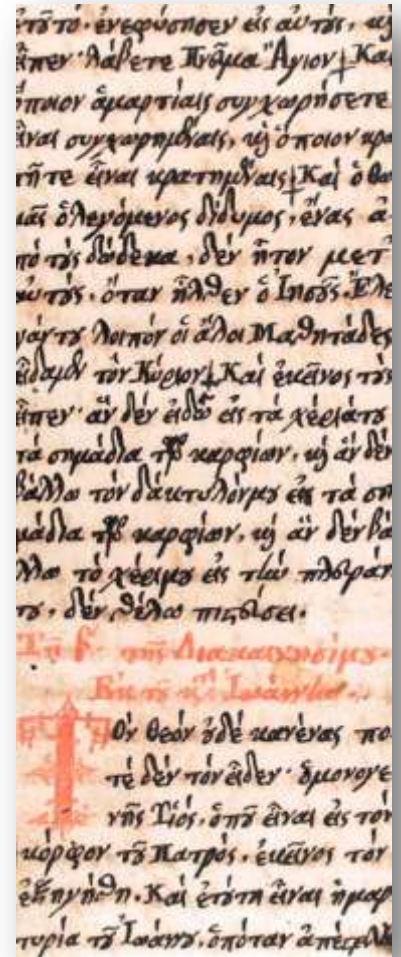 ἐτοῦτο· ἐνεφύσησεν εἰς αὐτούς, κὶ
εἶπεν· λάβετε Πνεῦμα Ἅγιον ┼ Καὶ
ὁποιον ἁμαρτίαις συγχωρήσετε
εἶναι συγχωρημέναις, κὶ ὁποιον κρα
τῆτε εἶναι κρατημέναις ┼ Καὶ ὁ θω
μᾶς ὁ λεγόμενος δίδυμος, ἕνας ἀ
πὸ τοὺς δώδεκα, δὲν ἦτον μετ
αὐτούς, ὅταν ἦλθεν ὁ Ἰησοῦς. Ἔλε
γάν του λοιπὸν οἱ ἄλλοι Μαθητάδες
εἴδαμεν τὸν Κύριον ┼ Καὶ ἐκεῖνος τοὺς
εἶπεν· ἂν δὲν εἰδῶ εἰς τὰ χέριάτου
τὰ σημάδια τῶν καρφίων, κὶ ἂν δὲν
βάλλω τὸν δάκτυλόνμου εἰς τὰ ση
μάδια τῶν καρφίων, κὶ ἂν δὲν βά
λλω τὸ χέριμου εἰς τὴν πλευράν
του, δὲν θέλω πιστεύσει.
Τῇ β´ τῆς Διακαινησίμου.
Ἐκ τοῦ κατὰ Ἰωάννην.
Τὸν θεὸν οὐδὲ κανένας πο
τὲ δὲν τὸν εἶδεν· ὁ μονογε
νὴς Υἱός, ὁποῦ εἶναι εἰς τὸν
κόρφον τοῦ Πατρός, ἐκεῖνος τὸν
ἐξηγήθη. Καὶ ἐτούτη εἶναι ἡ μαρ
τυρία τοῦ Ἰωάννου, ὁπόταν ἀπέστειλαν